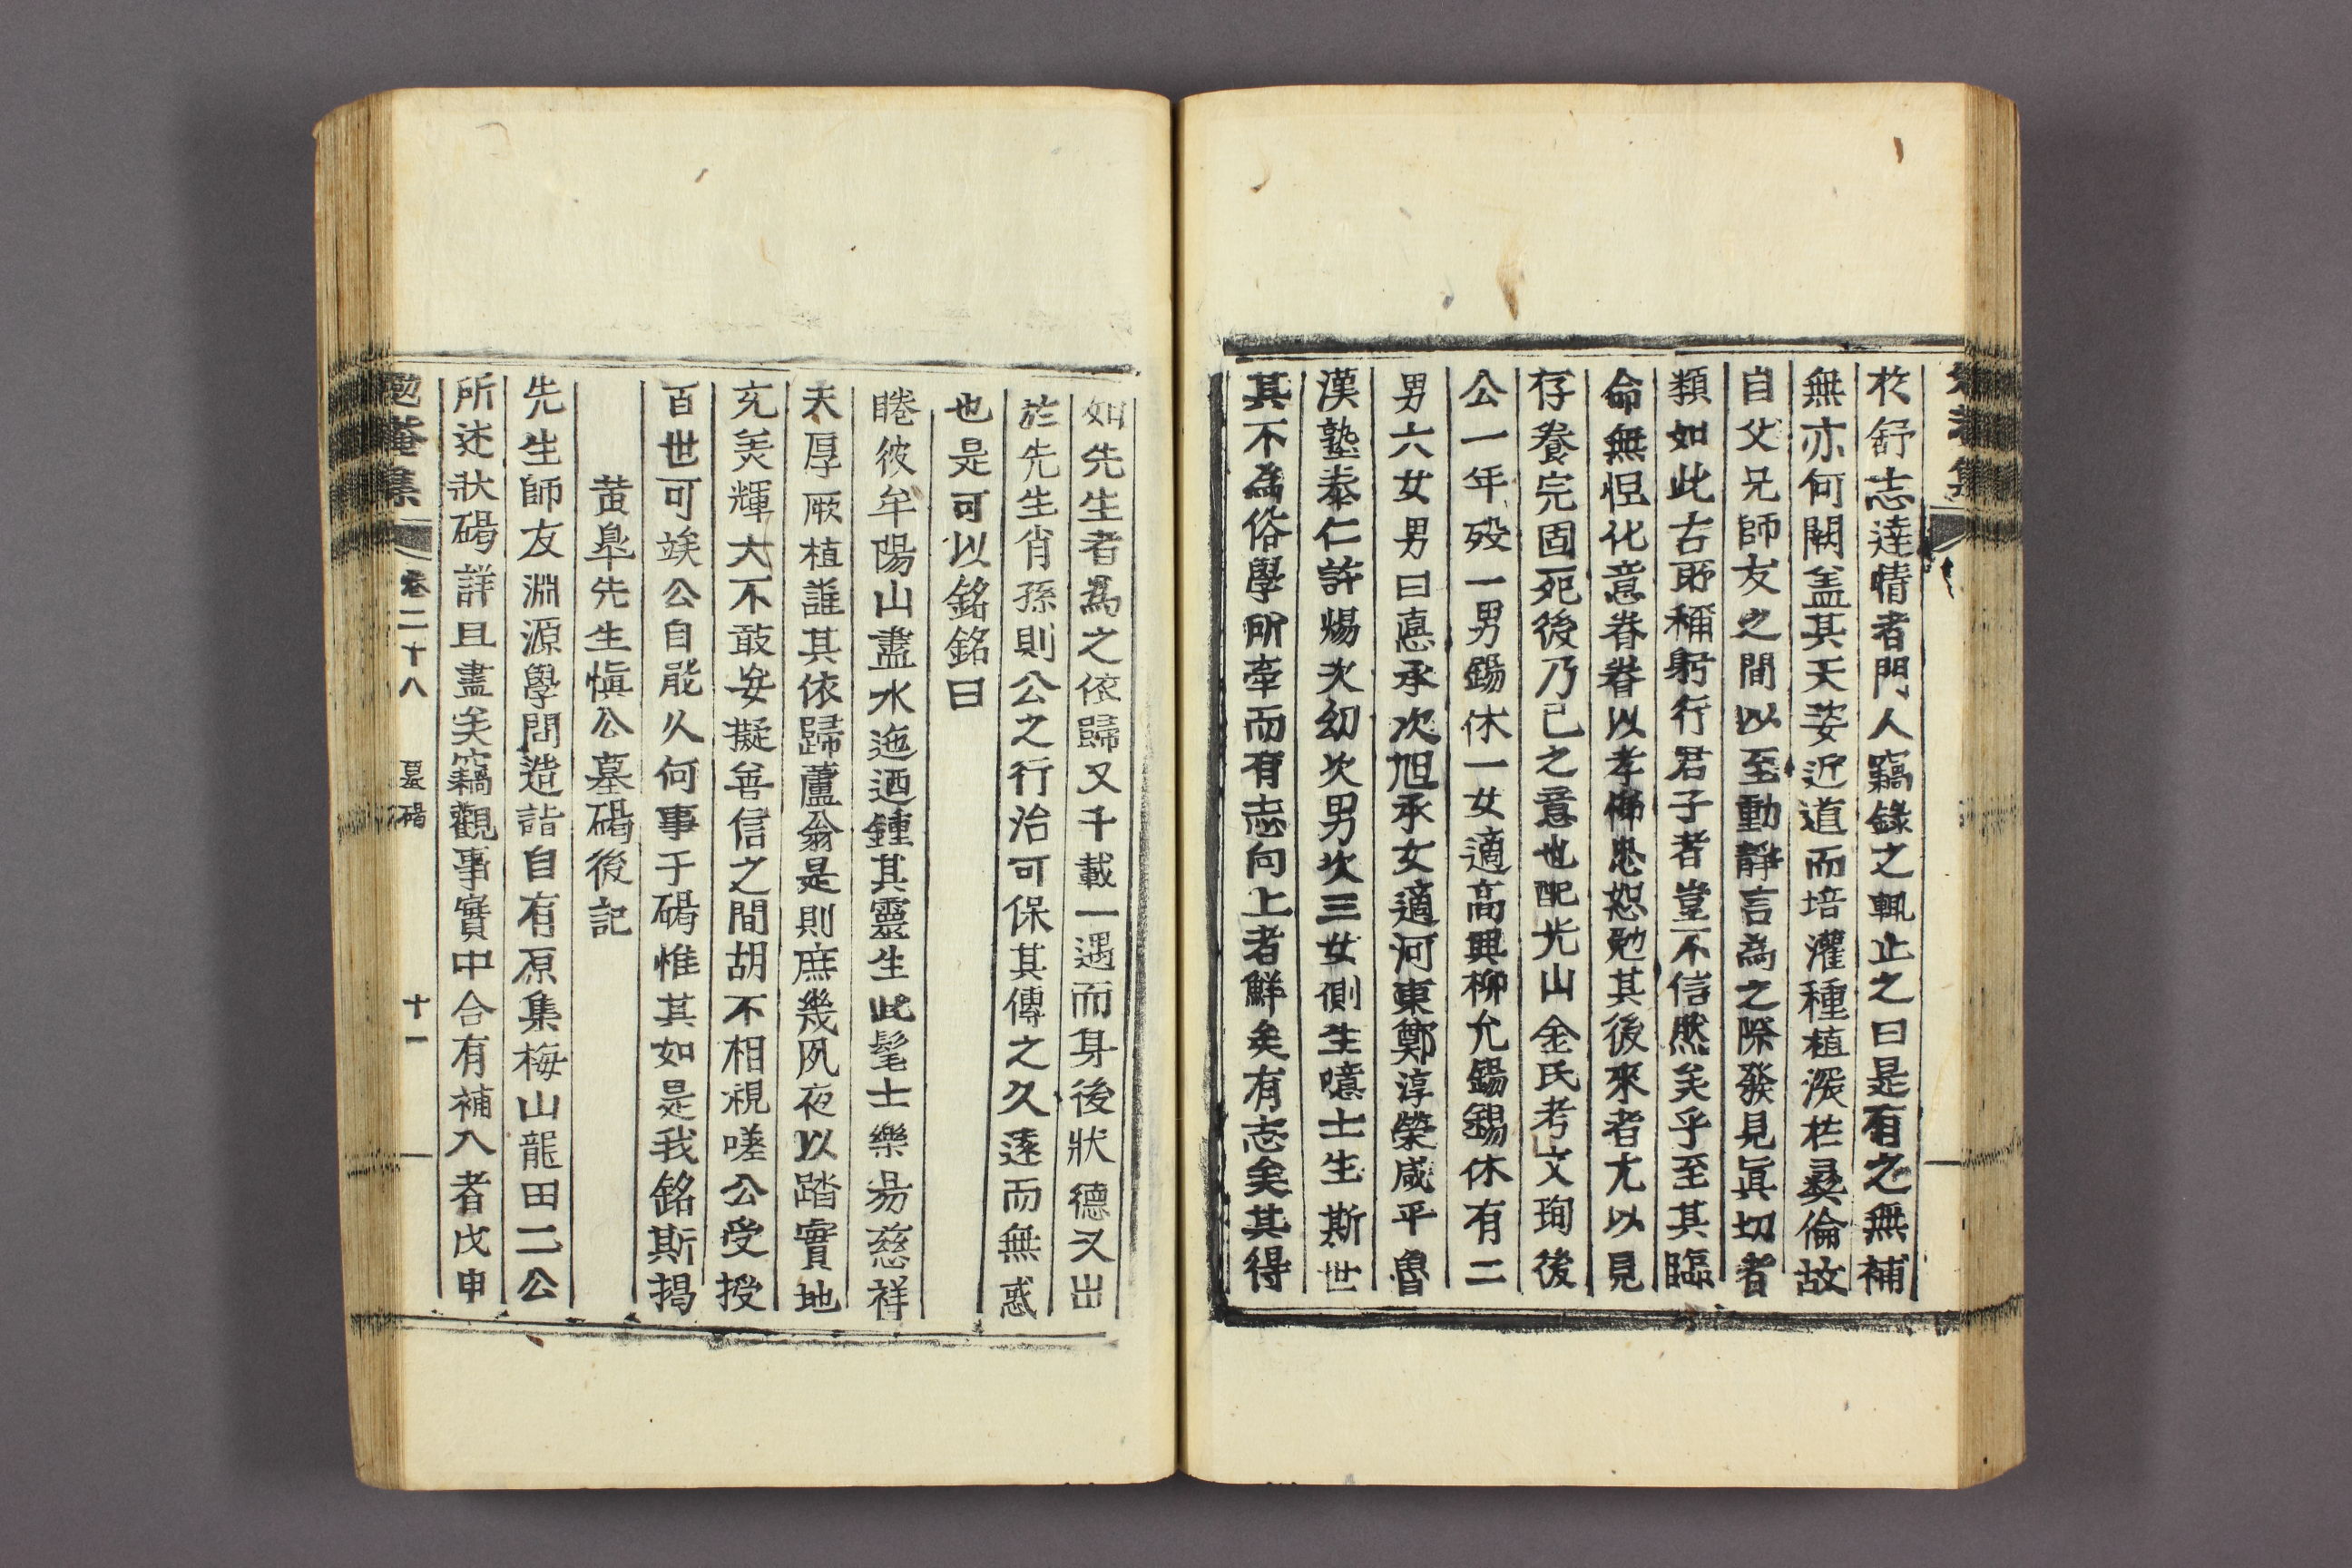 於舒志達情者門人竊錄之輒止之曰是有之無補
無亦何闕盖其天姿近道而培灌種植深在彛倫故
自父兄師友之間以至動靜言為之際發見眞切者
類如此古所稱躬行君子者豈不信然矣乎至其臨
命無怛化意眷眷以孝悌忠恕勉其後來者尤以見
存養完固死後乃已之意也配光山金氏考文珣後
公一年歿一男錫休一女適高興柳允錫錫休有二
男六女男曰悳承次旭承女適河東鄭淳榮咸平魯
漢塾泰仁許煬次幼次男次三女側生噫士生斯世
其不為俗學所牽而有志向上者鮮矣有志矣其得
如先生者爲之依歸又千載一遇而身後狀德又出
於先生肖孫則公之行治可保其傳之久遠而無惑
也是可以銘銘曰
睠彼牟陽山盡水迤迺鍾其靈生此髦士樂昜慈祥
夫厚厥植誰其依歸蘆翁是則庶幾夙夜以踏實地
充美輝大不敢妄擬善信之間胡不相視嗟公受授
百世可竢公自能久何事于碣惟其如是我銘斯揭
黃皐先生愼公墓碣後記
先生師友淵源學問造詣自有原集梅山龍田二公
所述狀碣詳且盡矣竊觀事實中合有補入者戊申
勉菴集 卷二十八 墓碣 十一